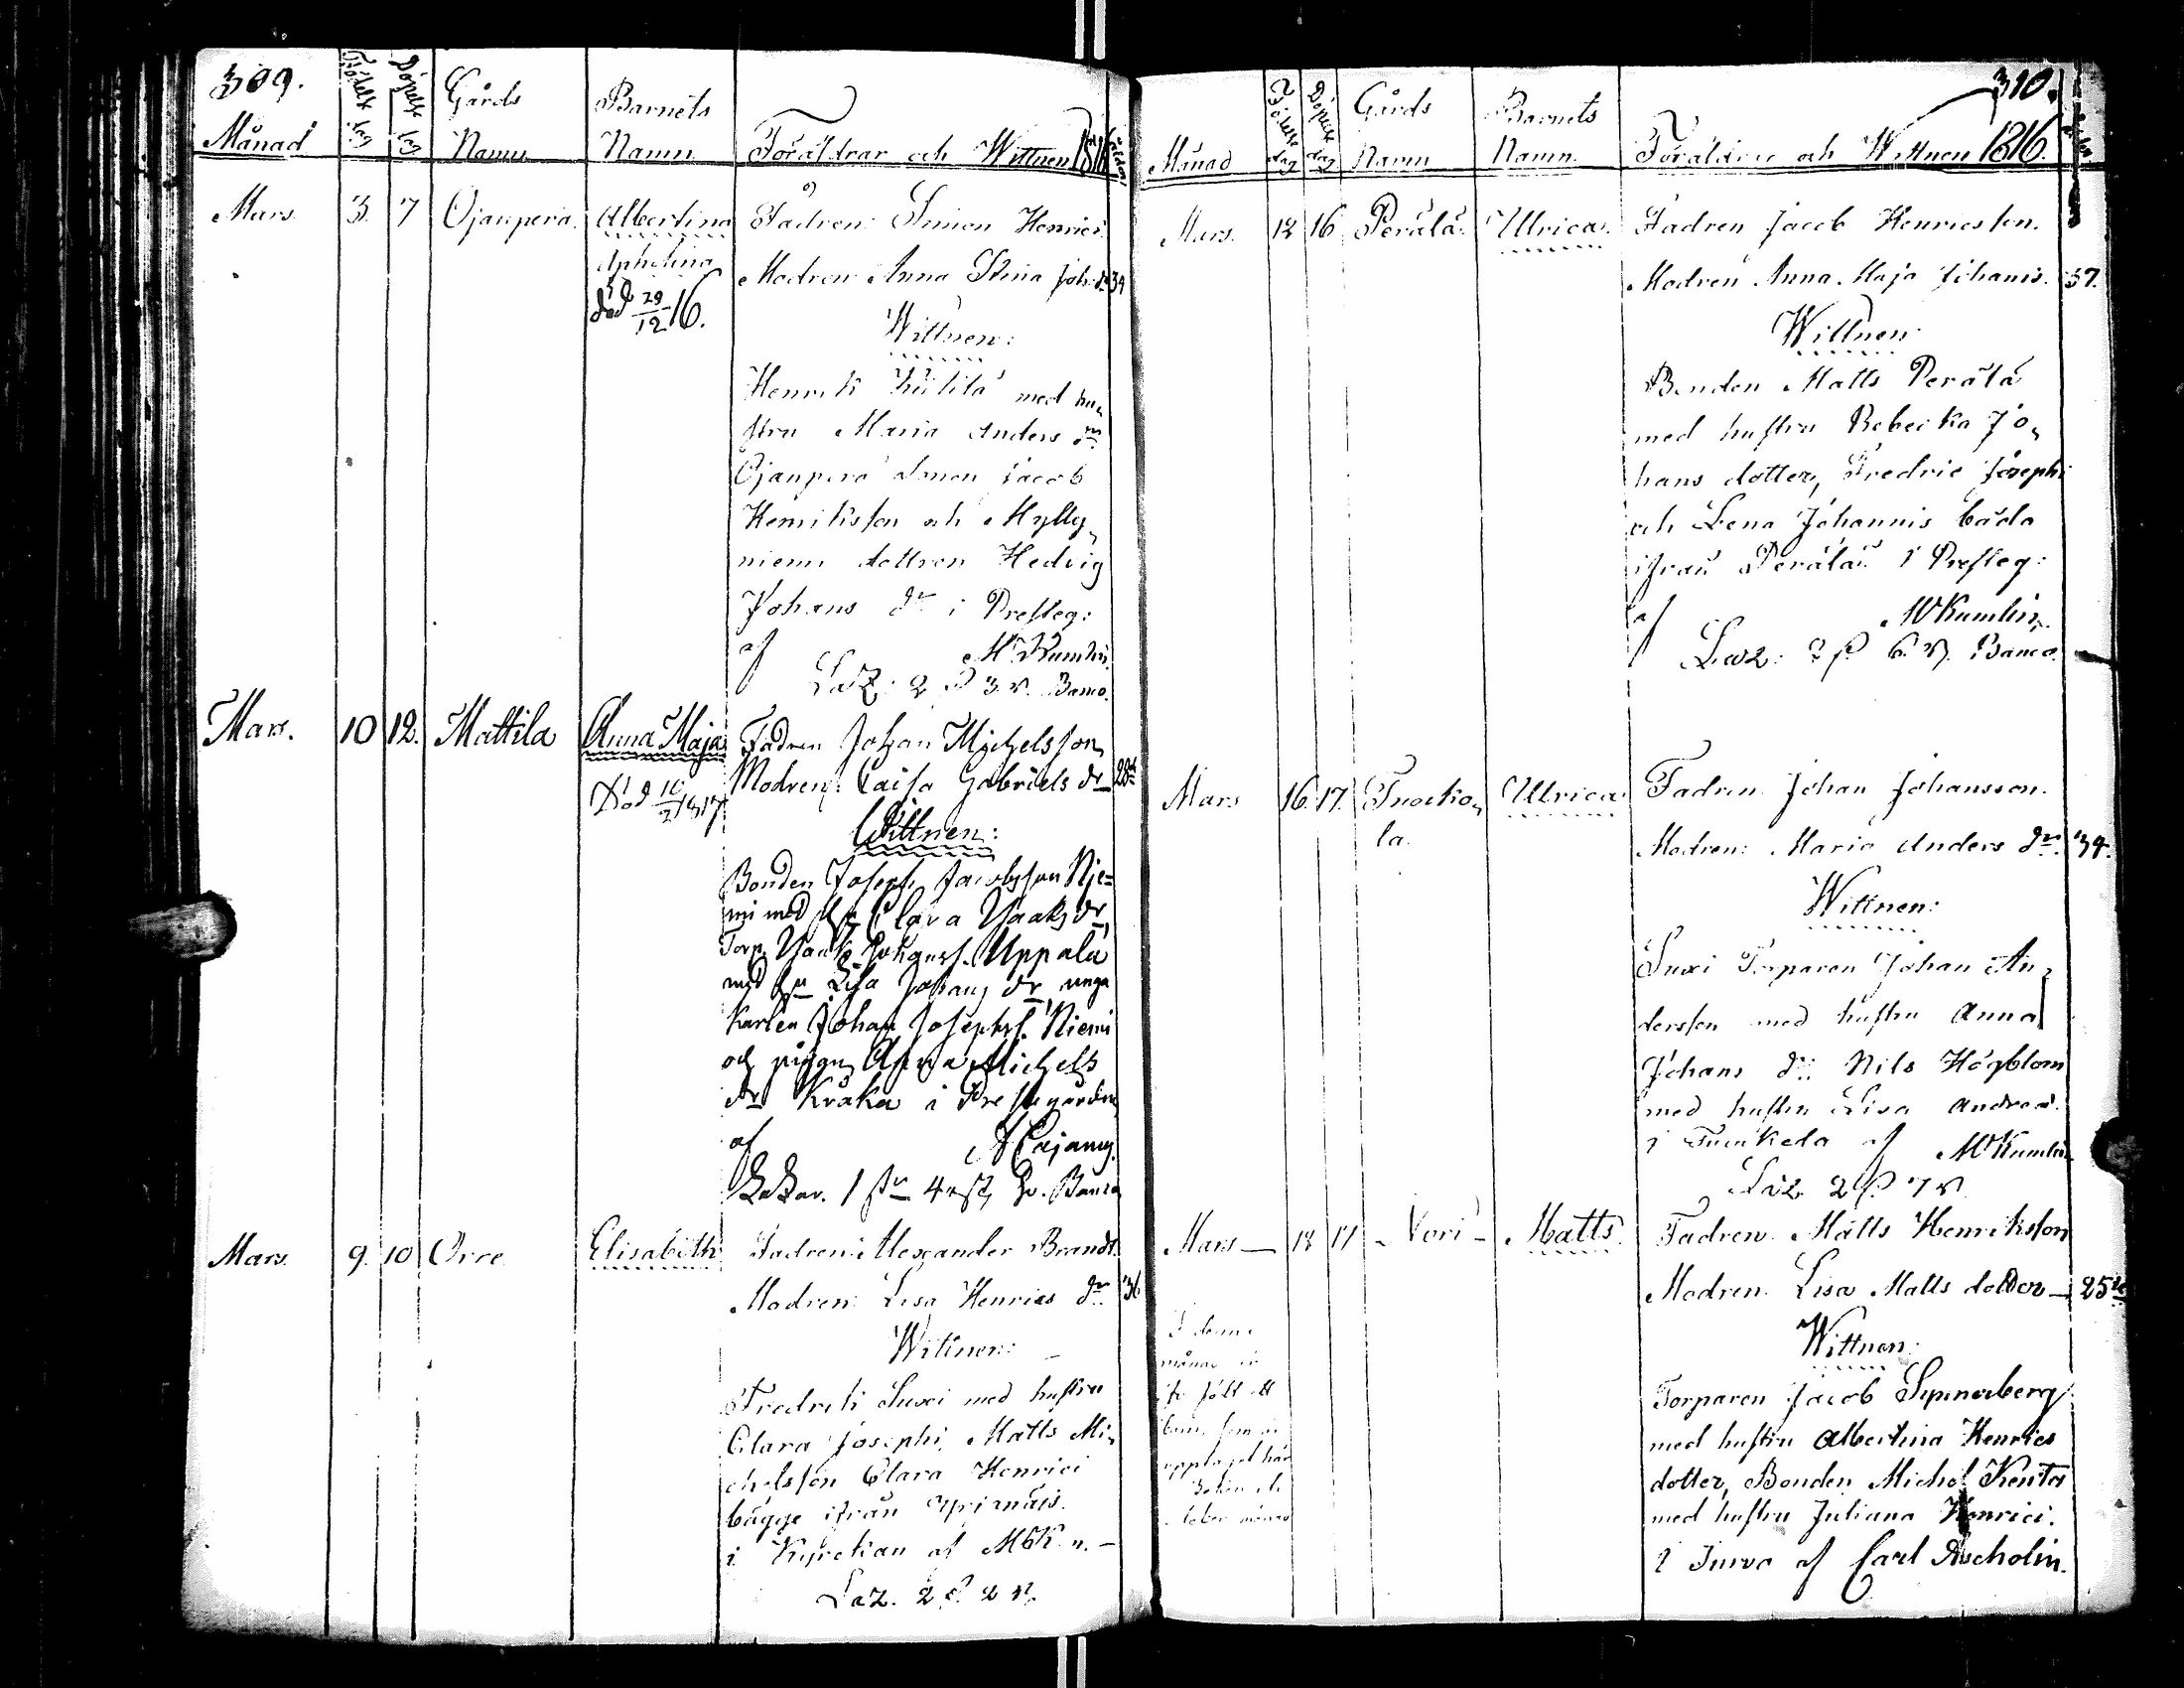 309.
Månad
Födelse dag
Döpelse dag
Gårds Namn
Barnets Namn
Föräldrar och Wittnen 1816
Mars. 3. 7 Ojanperä. Albertina Fadren: Simon Henrici
Modren Anna Stina Joh: dr 34
död 29/12 16.
Wittnen:
Henrik med hu-
stru Maria Anders dr
Ojanperä Jacob
Henriksson och Mylly-
niemi dottren Hedvig
Johans dr i Presteg:
af M Kumlin
Laz: 2 3 Banco.
Mars. 10 12. Mattila Anna Maja Fadren Johan Michelsson
Modren: Caisa Gabriels dr 28
Död 10/2 1817
Wittnen:
Bonden Joseph Jacobsson Nie-
mi med Clara Isaks dr
Torp. Isak Uppala
med Lisa Johans dr unga
Karlen Johan Josephs. Niemi
och pigan Anna Michels
dr Kråka i Prestgården
af A Cajanus.
Mars. 9. 10 Orre Elisabeth Fadren: Alexander Brandt
Modren: Lisa Henrics dr 36
Wittnen:
Fredrik Suxi med hustru
Clara Josephi, Matts Mi-
chelsson Clara Henrici
bägge ifrån
i Kyrckian af
Laz. 2 2
310.
Månad
Födelse dag
Döpelse dag
Gårds Namn
Barnets Namn.
Föräldrar och Wittnen 1816.
Mars. 12 16 Perälä. Ulrica. Fadren Jacob Henricsson.
Modren Anna Maja Johanis. 37.
Wittnen
Bonden Matts Perälä
med hustru Rebecka Jo-
hans dotter, Fredric Josephi
och Lena Johannis båda
ifrån Perälä i Presteg:
af M Kumlin.
Laz: 2 6 Banco.
Mars 16. 17. Tuocko-
la.
Ulrica Fadren Johan Johansson.
Modren: Maria Anders dr. 34.
Wittnen:
Suxi Torparen Johan An-
dersson med hustru Anna
Johans dr: Nils Högblom
med hustru Lisa Andreæ.
i af M Kumlin
Laz. 2 7
Mars — 12 17 - Nori - Matts. Fadren Matts Henriksson
Modren. Lisa Matts dotter — 25
Wittnen:
Torparen Jacob
med hustru Albertina Henrics
dotter, Bonden Michel Kentta
med hustru Juliana Henrici.
i Jurva af Carl Ascholin.
I denna
månad är
född ett
barn som är
upptaget här